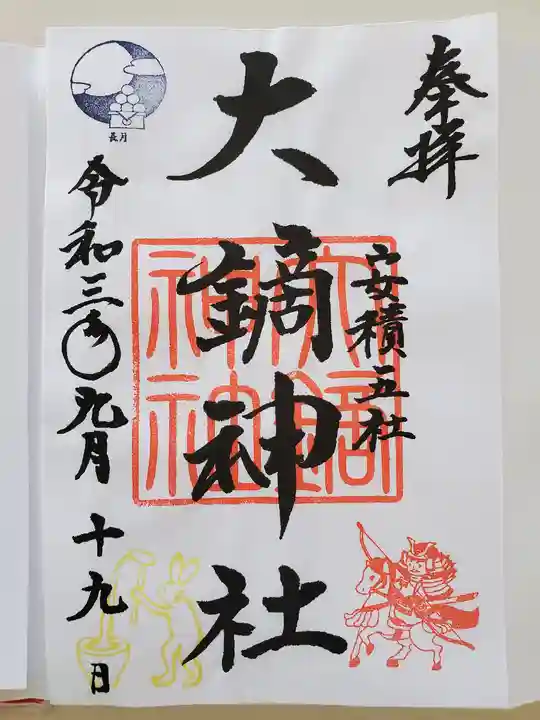 奉拝
安積五社
大鏑神社
大鏑神社
令和三年九月十九日
長月